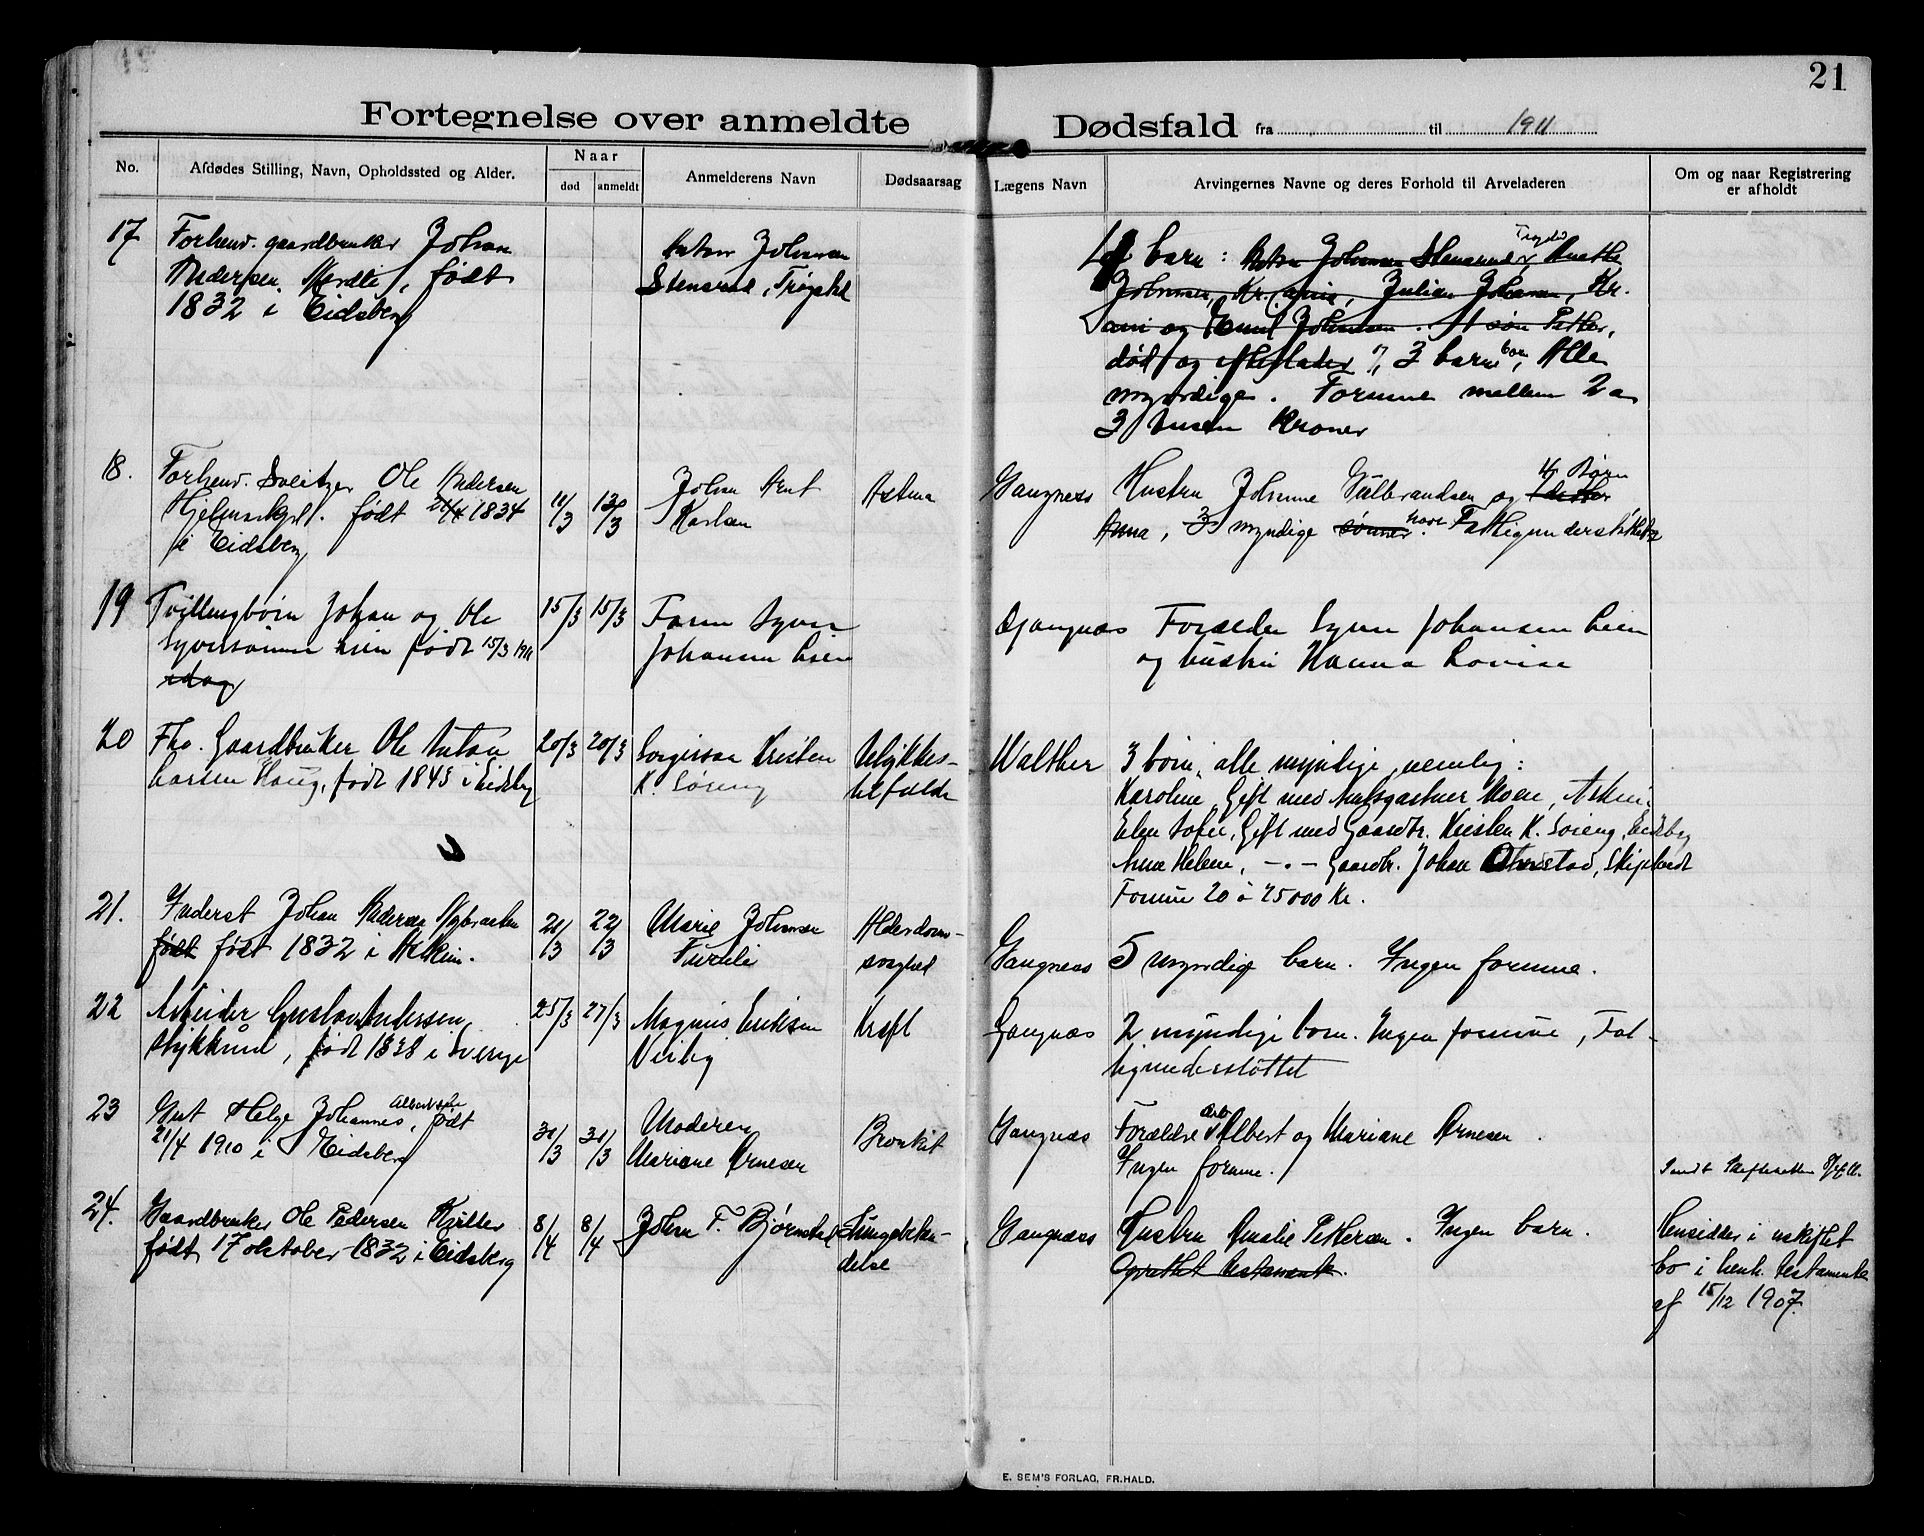 21
Fortegnelse over anmeldte Dødsfald fra til 1911
No.
Afdødes Stilling, Navn, Opholdssted og Alder.
Naar
død
anmeldt
Anmelderens Navn
Dødsaarsag
Lægens Navn
Arvingernes Navne og deres Forhold til Arveladeren
Om og naar Registrering
er afholdt
17
Forhenv. gaardbruker Johan
Pedersen, født
1832 i Eidsberg
Anton Johnsen
Stensrud, Trøgstad
barn : Anton Johnsen Stensrud,
Johnsen, Kr.ania, Julian Johnsen, Kr.
ania og Emil Johnsen. 1 søn Petter,
død og efterlader 3 barn, Alle
myndige. Formue mellem 2 a
3 tusen Kroner
18.
Forhenv. Sveitzer Ole Andersen
født 1834
i Eidsberg
11/3
13/3
Johan
Karlsen
Astma
Gangnæss
Hustru Johanne Gulbrandsen og 4 Børn
Anna, 3 myndige sønner. Fattigunderstøttet
19
Tvillingbørn Johan og Ole
Syversønner Lien født 15/3 1911
idag
15/3
15/3
Faren Syver
Johansen Lien
Gangnæs
Forældre Syver Johansen Lien
og hustru Hanna Lovise
20
Fhv. Gaardbruker Ole Anton
Larsen Haug, født 1843 i Eidsberg
20/3
20/3
Svigersøn Kristen
K. Søreng
Ulykkes-
tilfælde
Walther
3 børn, alle myndige, nemlig:
Karoline, Gift med Moen, Askim
Elen Sofie, Gift med Gaardbr. Kristen K. Søreng, Eidsberg
Anna Helene, - " - Gaardbr. Johan Skiptvedt
Formue 20 à 25000 Kr.
21.
Inderst Johan Pedersen Nybraaten
født født 1832 i Askim.
21/3
22/3
Marie Johnsen
Furuli
Alderdoms-
svaghed
Gangnæss
5 myndige barn. Ingen formue.
22
Arbeider Gustav Andersen,
Stykkrud, født 1838 i Sverige
25/3
27/3
Magnus Eriksen
Kræft
Gangnæs
2 myndige born. Ingen formue, Fat-
tigunderstøttet
23
Gut Helge Johannes Albertsen, født
21/4 1910 i Eidsberg
31/3
31/3
Moderen
Mariane Arnesen
Bronkit
Gangnæs
Forældre Arb. Albert og Mariane Arnesen.
Ingen formue.
Sendt Skifteretten 8/4 11.
24.
Gaardbruker Ole Pedersen
født 17 oktober 1832 i Eidsberg
8/4
8/4
Johan F. Bjørnstad
Lungebeten-
delse
Gangnæss
Hustru Amalie Pettersen. Ingen barn.
Oprettet testamente.
Hensidder i uskiftet
bo i henh. testamente
af 15/12 1907.
E. SEM'S FORLAG, FR.HALD.